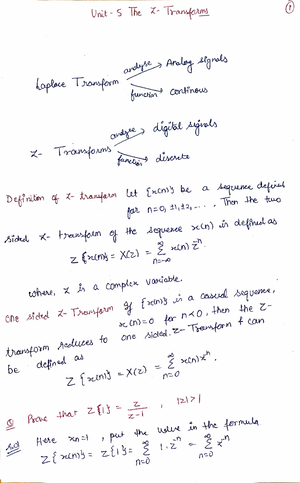 Unit - 5 The Z- Transforms
1
analyse Analog signals
Laplace Transform
function continous
analyse digital signals
Z- Transforms
function discrete
Definiton of Z- transform Let {x(n)} be a sequence defined
for n=0, ±1, ±2, . . . . Then the two
sided Z- transform of the sequence x(n) is defined as
Z {x(n)} = X(z) = ∞ Σ n=-∞ x(n) z⁻ⁿ
where, z is a complex variable.
One sided Z-Transform If {x(n)} is a casual sequence,
x(n)=0 for n<0, then the Z-
transform reduces to one sided. Z-Transform & can
be defined as
Z {x(n)} = X(z) = ∞ Σ n=0 x(n) z⁻ⁿ
Q Prove that Z{1} = z/z-1, |z|>1
Sol Here xn=1, put the value in the formula
Z{x(n)} = Z{1} = ∞ Σ n=0 1·z⁻ⁿ = ∞ Σ n=0 z⁻ⁿ